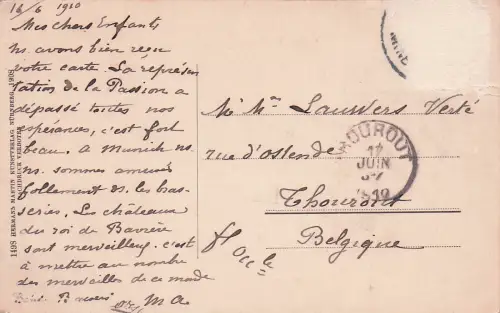 16/6 1910
Mes chers Enfants
ns. avons bien reçu
votre carte. La représen
tation de la Passion a
dépassé toutes nos
espérances, c'est fort
beau. A Munich ns.
ns. sommes amusés
follement ds. les bras-
series. Les châteaux
du roi de Bavière
sont merveilleux, c'est
à mettre au nombre
des merveilles de ce monde
Bons Baisers
M A.
1408 HERMANN MARTIN KUNSTVERLAG, NÜRNBERG, 1908
NACHDRUCK VERBOTEN
Mr Mme Lauwers Verté
rue d'Ostende
Thourout
Belgique
fl occ.le
THOUROUT
17
JUIN
1910